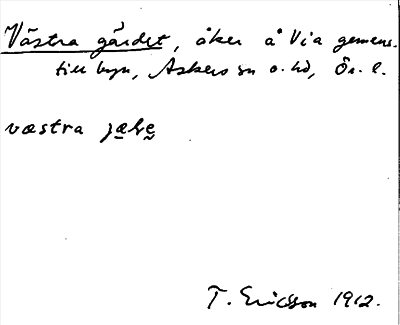 Västra gärdet, åker å Via gemens.
till byn, Askers sn o. hd, Ör. l.
væstra jæḷe
T. Ericsson 1912.